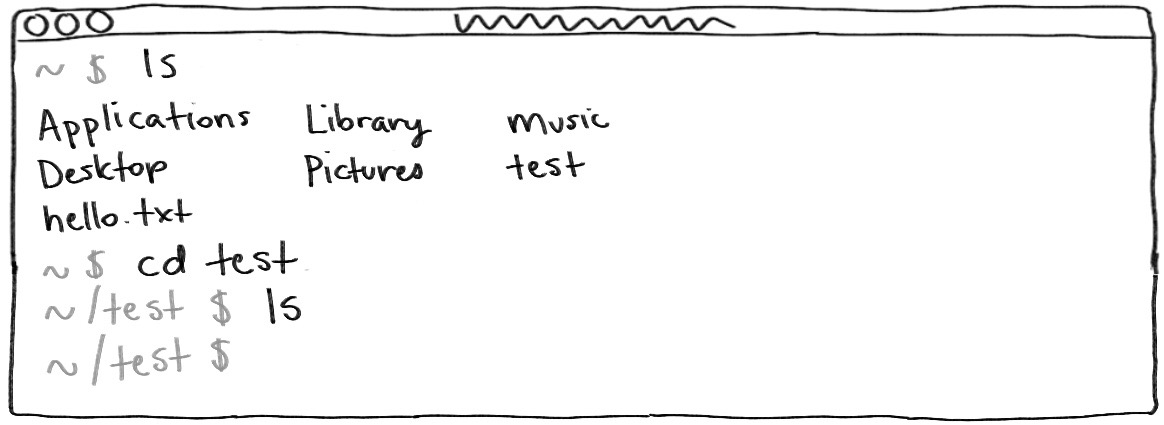 ~ $ ls
Applications Library music
Desktop Pictures test
hello.txt
~ $ cd test
~/test $ ls
~/test $